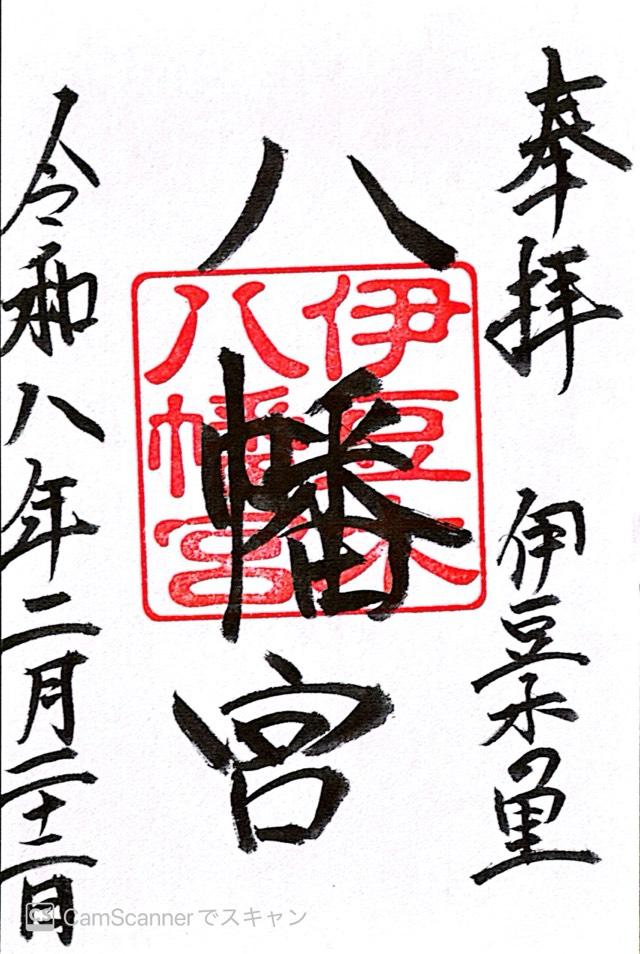 奉拝 伊豆木
八幡宮
伊豆木
八幡宮
令和八年二月二十二日
CS CamScannerでスキャン